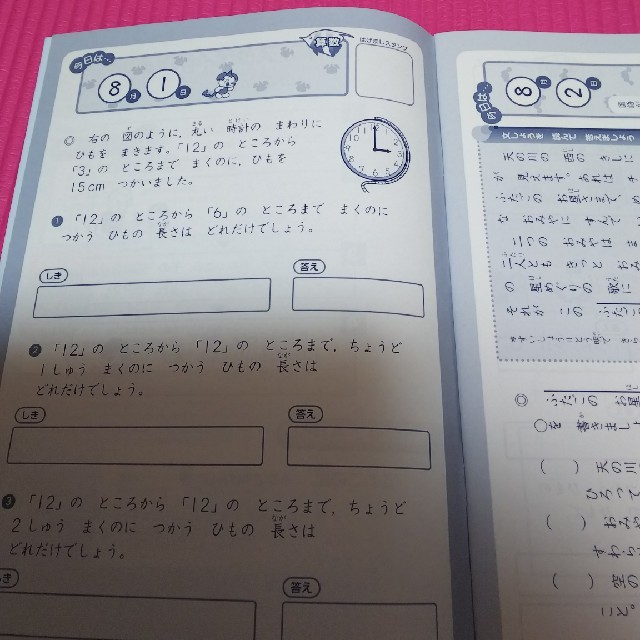 今日は…
8月1日
算数
はげましスタンプ
◎ 右の 図のように、丸い 時計の まわりに
ひもを まきます。「12」の ところから
「3」の ところまで まくのに、ひもを
15cm つかいました。
❶ 「12」の ところから 「6」の ところまで まくのに
つかう ひもの 長さは どれだけでしょう。
しき
答え
❷ 「12」の ところから 「12」の ところまで、ちょうど
1しゅう まくのに つかう ひもの 長さは
どれだけでしょう。
しき
答え
❸ 「12」の ところから 「12」の ところまで、ちょうど
2しゅう まくのに つかう ひもの 長さは
どれだけでしょう。
しき
答え
今日は…
8月2日
文しょうを 読んで 答えましょう
天の川の 西の きしに
が 見えます。あれは
ふたごの お星さまで
な おみやに すんで
二つの おみやは
二人とも きっと
の 星めぐりの 歌に
それが この ふたごの
◎ ふたごの お星
○を 書きましょ
( ) 天の川
ひろって
( ) おみや
すわら
( ) 空の
こと。